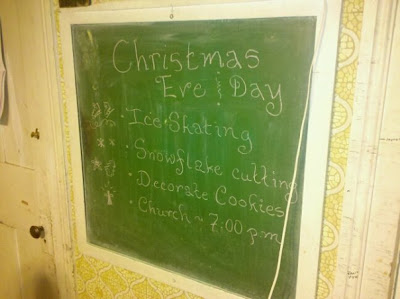 Christmas
Eve & Day
• Ice Skating
• Snowflake cutting
• Decorate Cookies
• Church ~ 7:00 pm